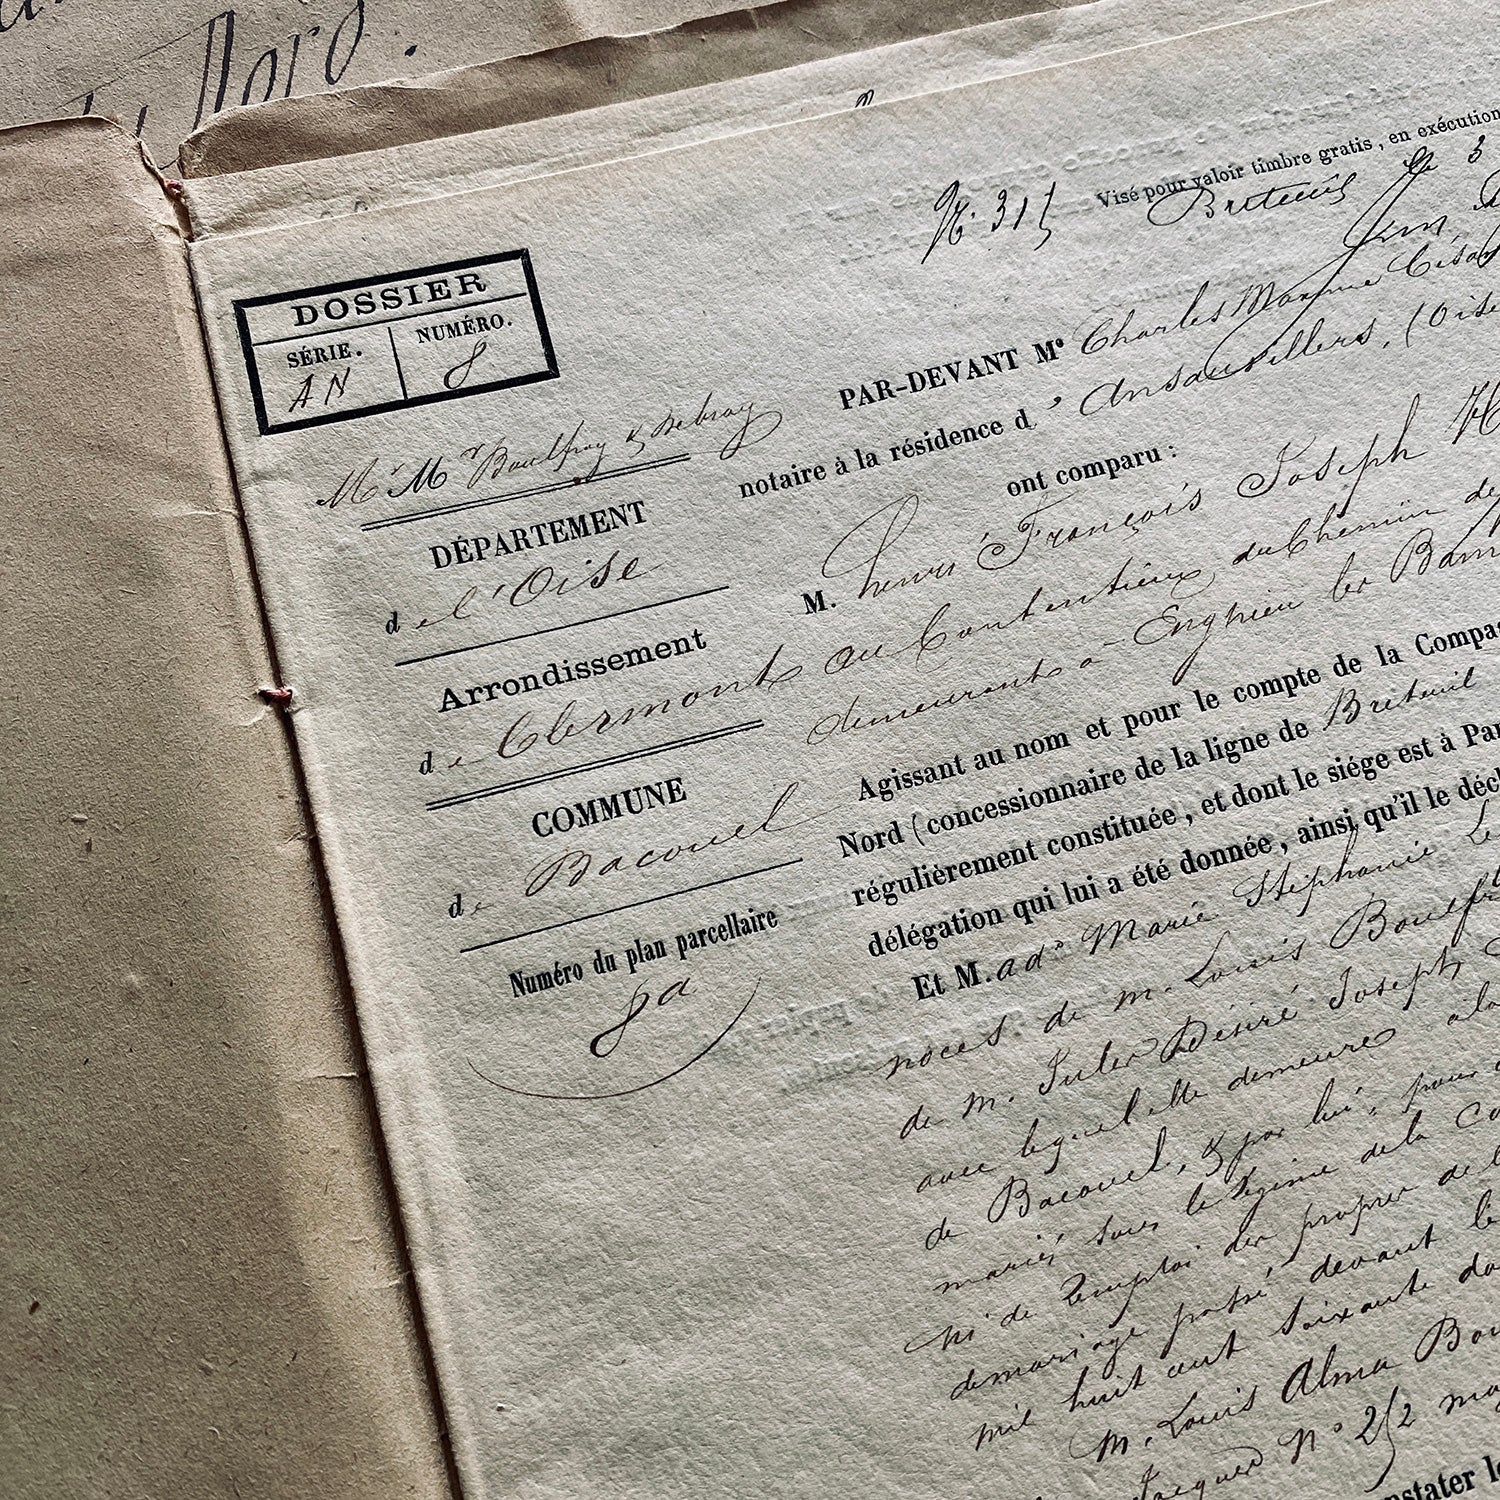 Nord.
DOSSIER
SÉRIE. NUMÉRO.
AN 8
Mr Mr Boulfroy & Debray
DÉPARTEMENT
de l'Oise
Arrondissement
de Clermont
COMMUNE
de Bacouel
Numéro du plan parcellaire
8a
Nº 315
Visé pour valoir timbre gratis, en exécution
Breteuil le 3
PAR-DEVANT Me Charles Maxime César
notaire à la résidence d'Ansauvillers, (Oise
ont comparu :
M. henri François Joseph H
au Contentieux du Chemin de
demeurant à Enghien les Bains
Agissant au nom et pour le compte de la Compa
Nord (concessionnaire de la ligne de Breteuil
régulièrement constituée, et dont le siége est à Par
délégation qui lui a été donnée, ainsi qu'il le décl
Et M.ade Marie Stéphanie Le
noces de m. Louis Boulfr
de M. Jules Désiré Joseph
avec lequel elle demeure
de Bacouel, & par lui, pour
mariés sous le régime de la Co
ni de Remploi des propres de l
de mariage passé devant
mil huit cent soixante do
M. Louis Alma Bou
Jacques Nº 252 ma
nstater le